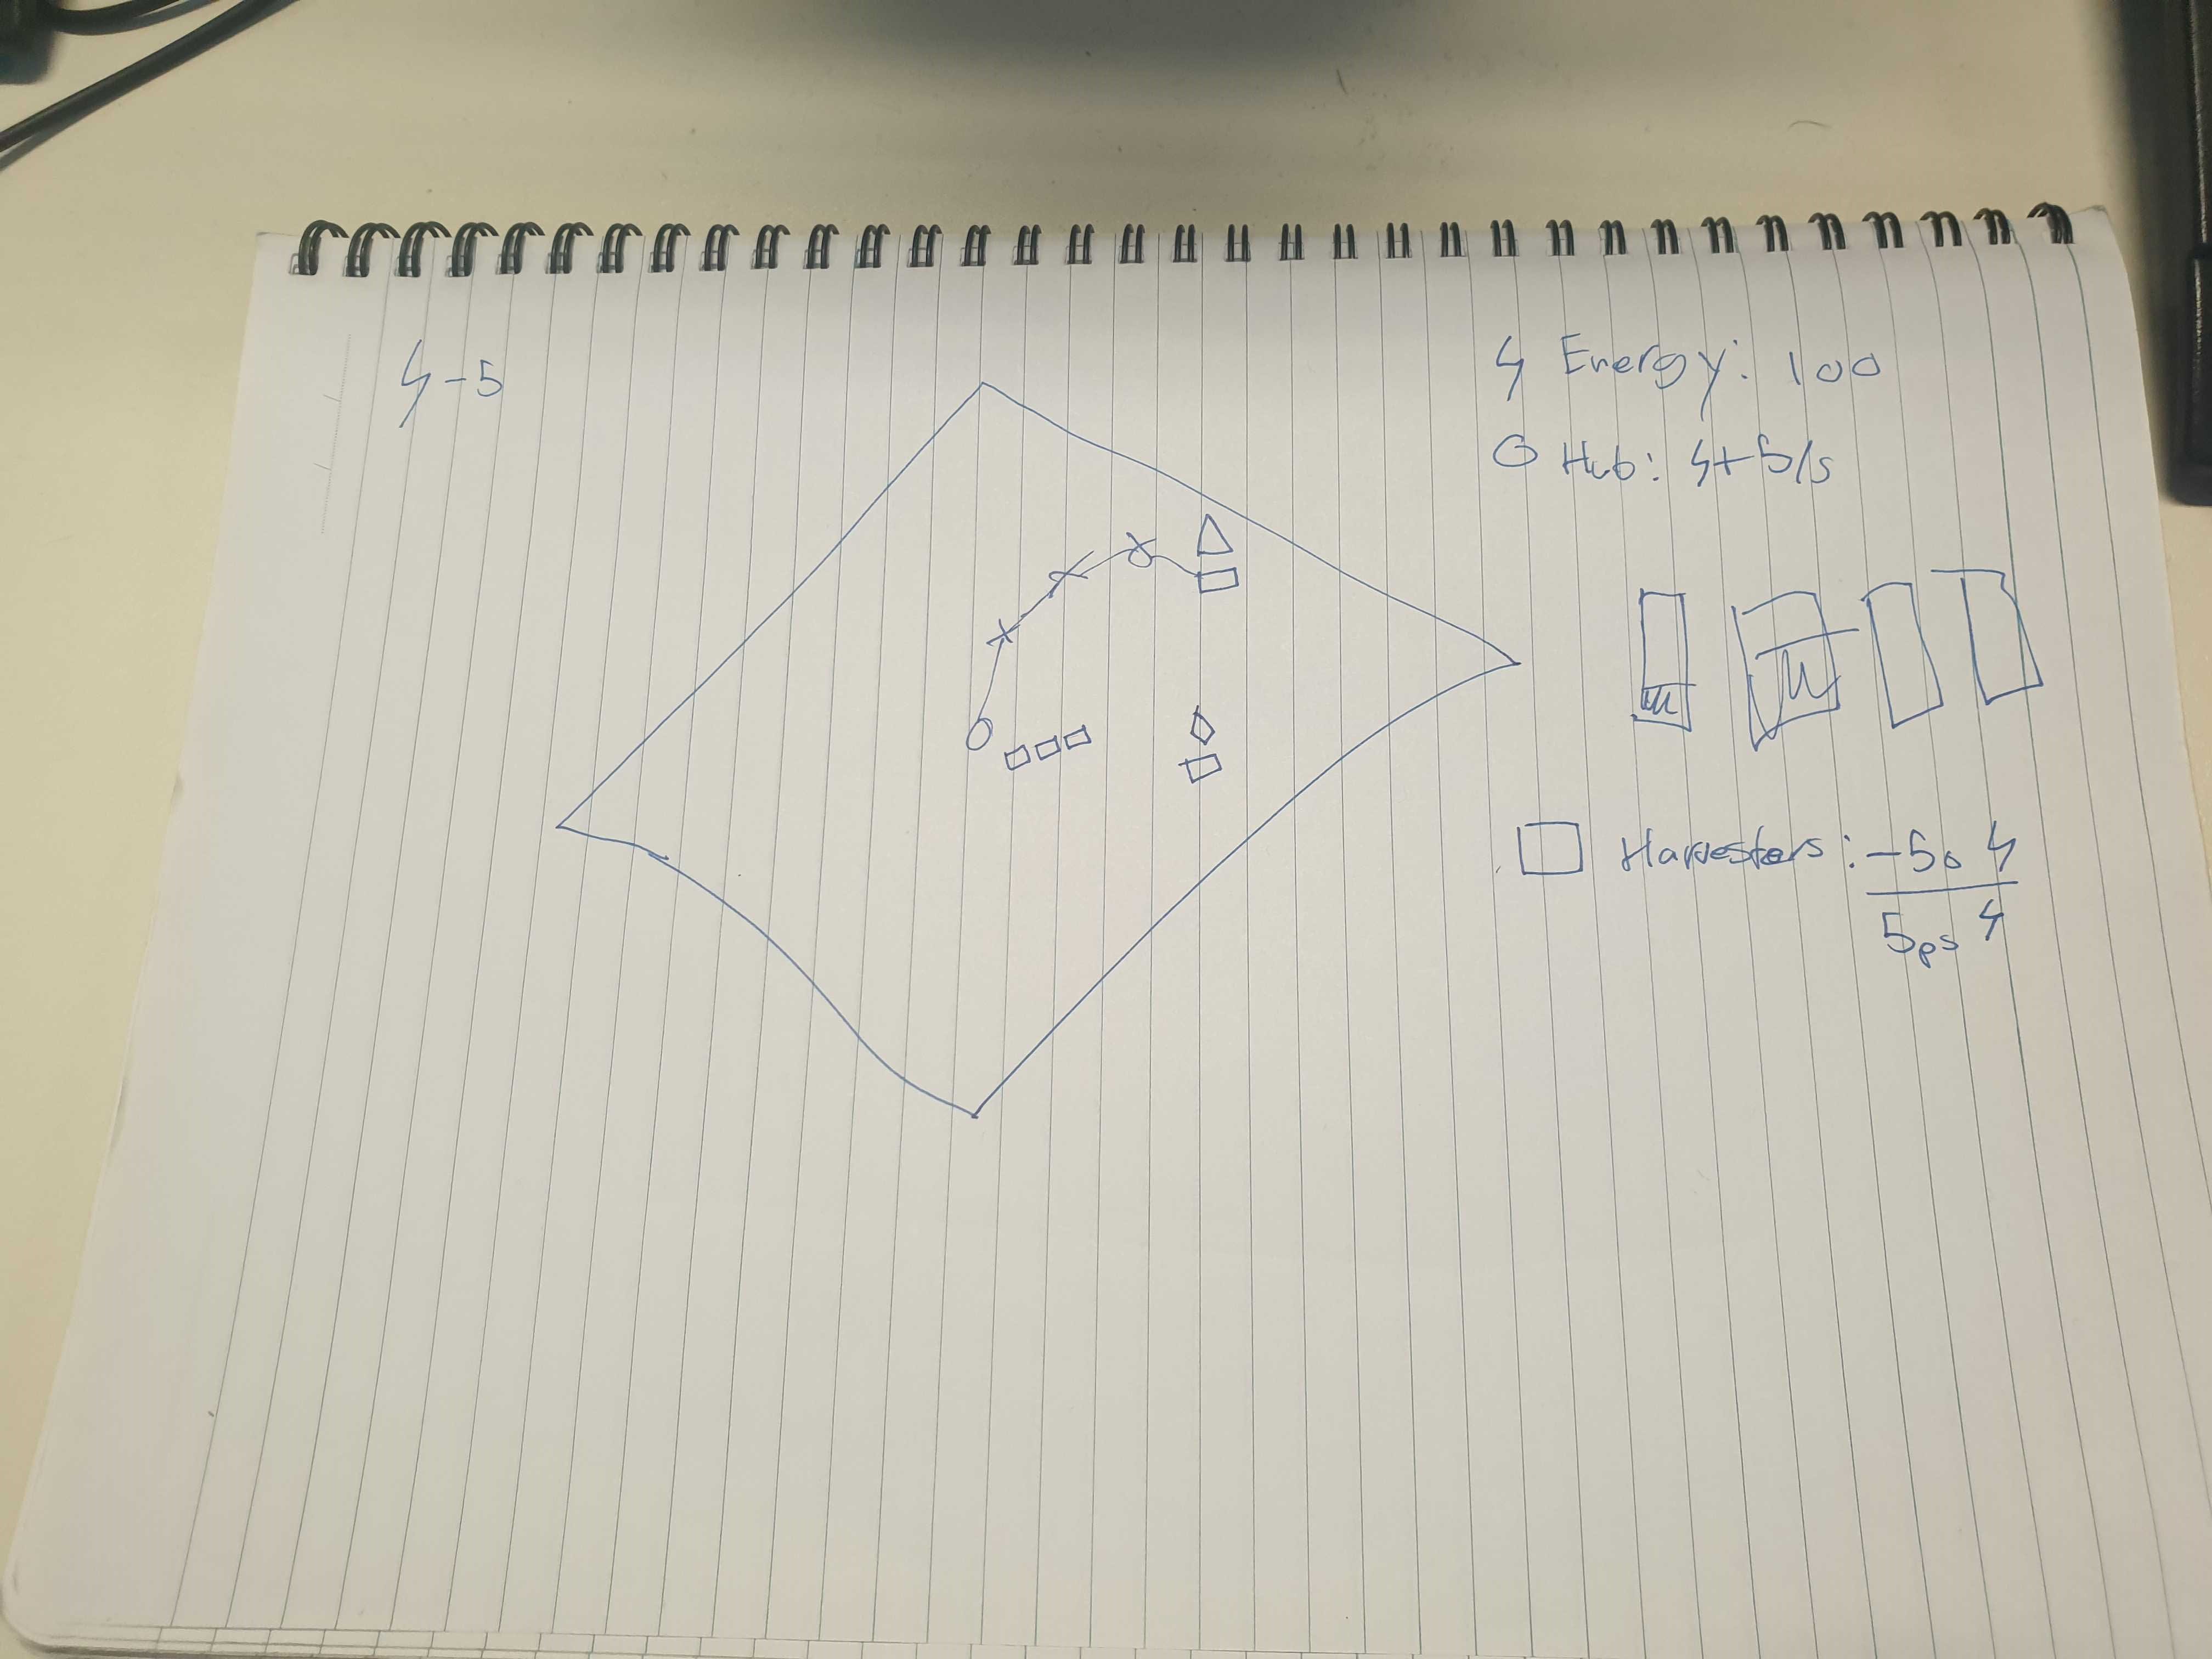 ϟ -5
ϟ Energy: 100
O Hub: ϟ+5/s
Harvesters: -50 ϟ
5ps ϟ